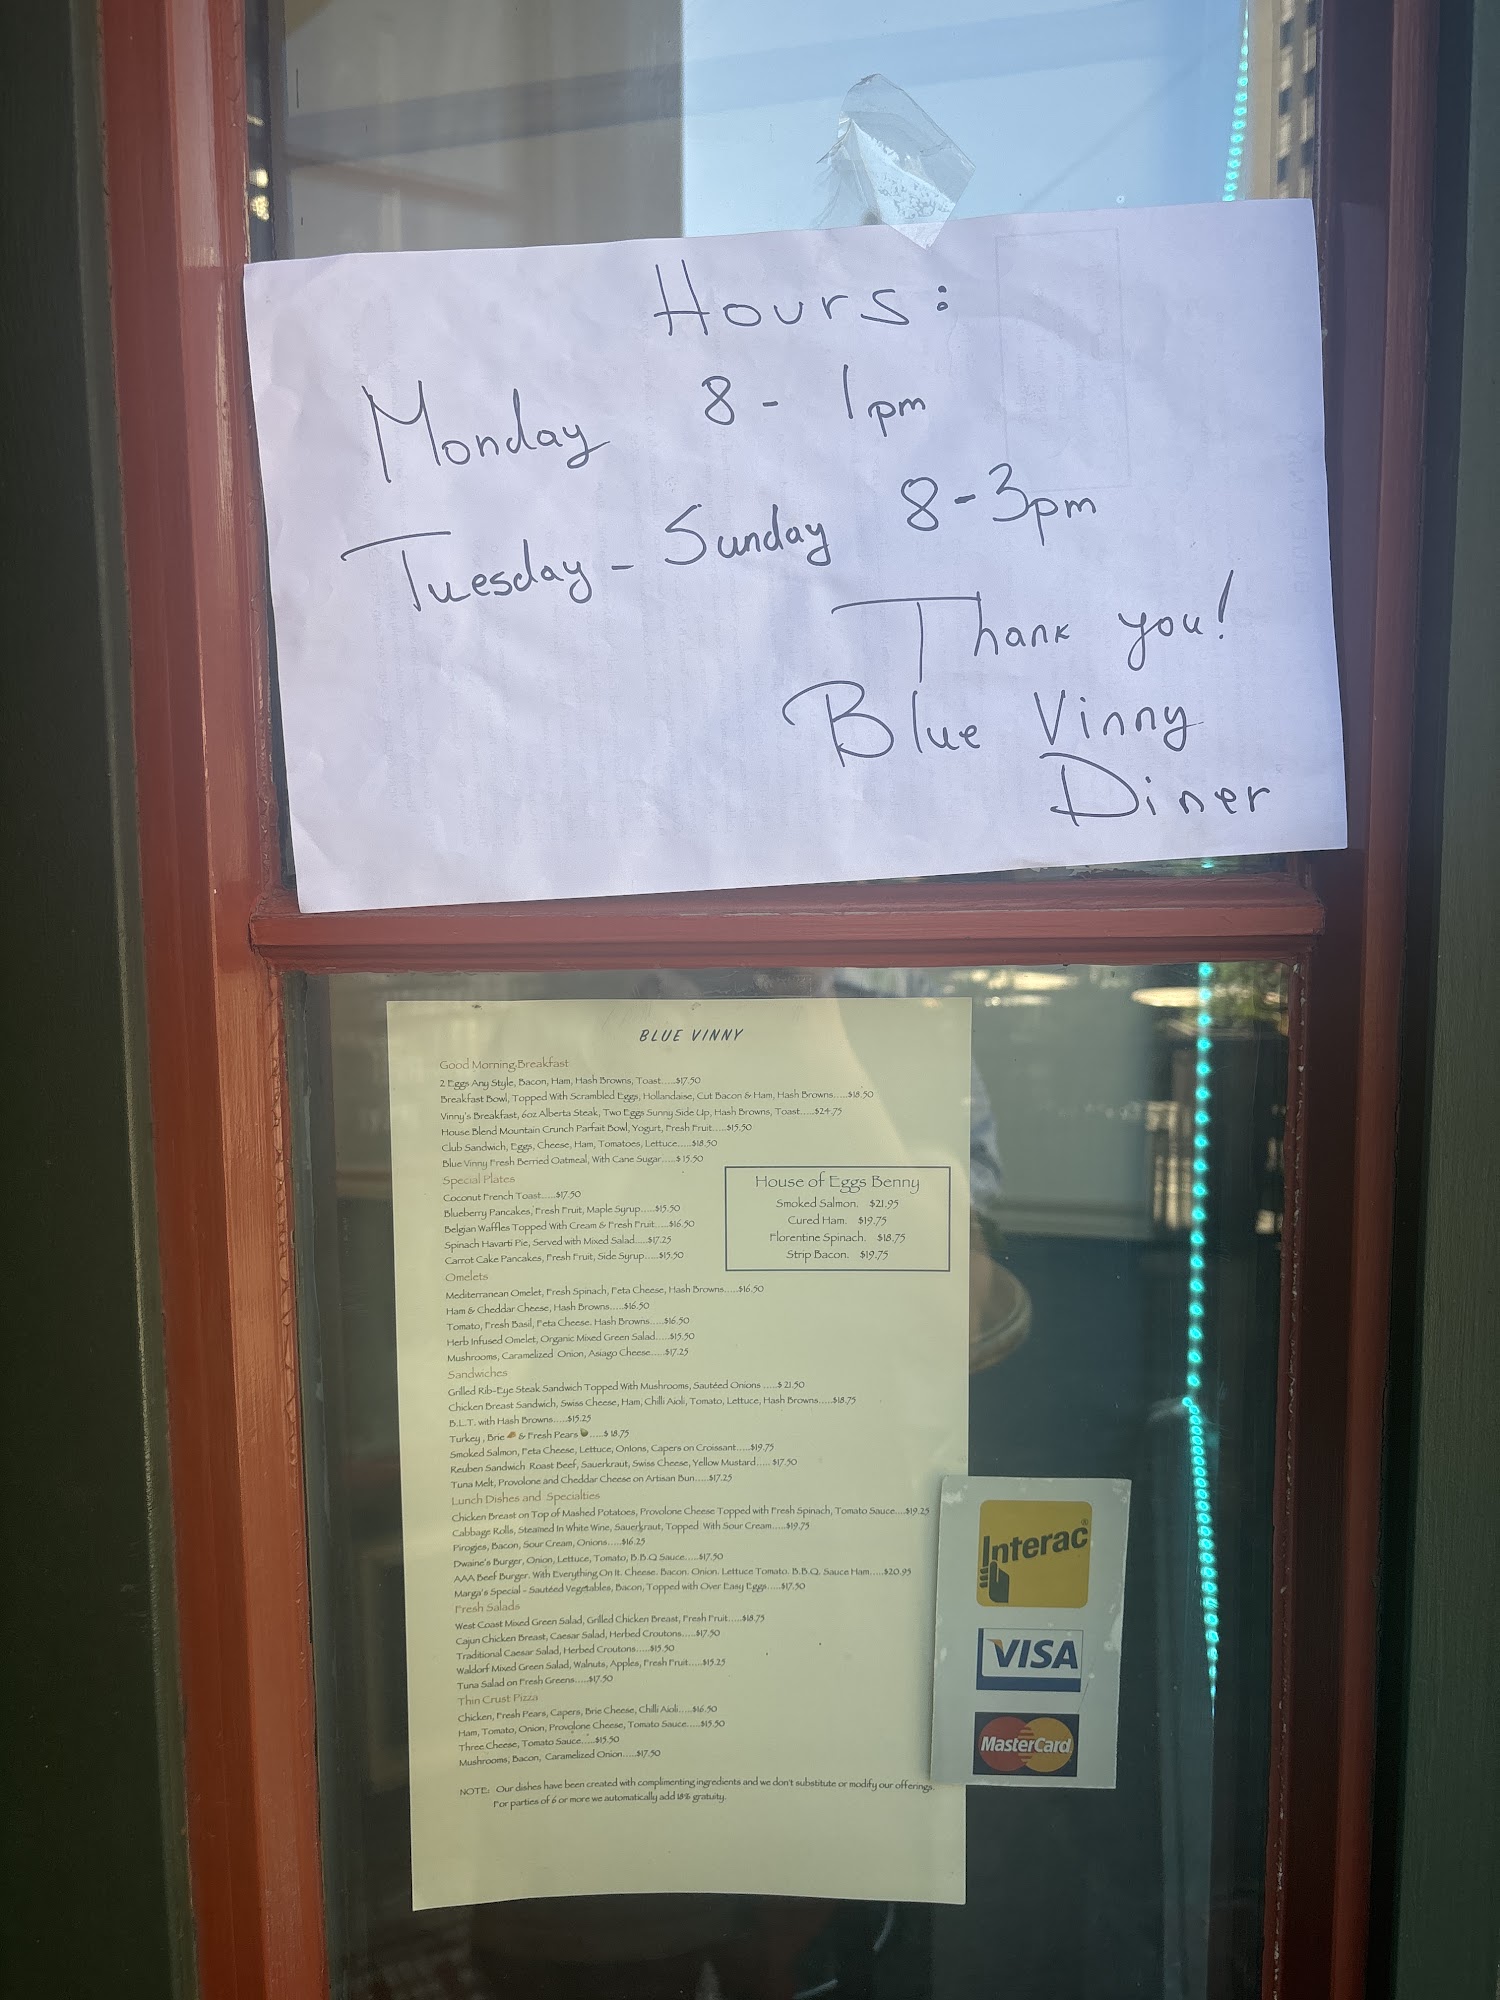 Hours:
Monday 8 - 1pm
Tuesday - Sunday 8-3pm
Thank you!
Blue Vinny
Diner
BLUE VINNY
Good Morning Breakfast
2 Eggs Any Style, Bacon, Ham, Hash Browns, Toast.....$17.50
Breakfast Bowl, Topped With Scrambled Eggs, Hollandaise, Cut Bacon & Ham, Hash Browns.....$18.50
Vinny's Breakfast, 6oz Alberta Steak, Two Eggs Sunny Side Up, Hash Browns, Toast.....$24.75
House Blend Mountain Crunch Parfait Bowl, Yogurt, Fresh Fruit.....$15.50
Club Sandwich, Eggs, Cheese, Ham, Tomatoes, Lettuce.....$18.50
Blue Vinny Fresh Berried Oatmeal, With Cane Sugar.....$ 15.50
Special Plates
Coconut French Toast.....$17.50
Blueberry Pancakes, Fresh Fruit, Maple Syrup.....$15.50
Belgian Waffles Topped With Cream & Fresh Fruit.....$16.50
Spinach Havarti Pie, Served with Mixed Salad.....$17.25
Carrot Cake Pancakes, Fresh Fruit, Side Syrup.....$15.50
House of Eggs Benny
Smoked Salmon. $21.95
Cured Ham. $19.75
Florentine Spinach. $18.75
Strip Bacon. $19.75
Omelets
Mediterranean Omelet, Fresh Spinach, Feta Cheese, Hash Browns.....$16.50
Ham & Cheddar Cheese, Hash Browns.....$16.50
Tomato, Fresh Basil, Feta Cheese. Hash Browns.....$16.50
Herb Infused Omelet, Organic Mixed Green Salad.....$15.50
Mushrooms, Caramelized Onion, Asiago Cheese.....$17.25
Sandwiches
Grilled Rib-Eye Steak Sandwich Topped With Mushrooms, Sautéed Onions .....$ 21.50
Chicken Breast Sandwich, Swiss Cheese, Ham, Chilli Aioli, Tomato, Lettuce, Hash Browns.....$18.75
B.L.T. with Hash Browns.....$15.25
Turkey, Brie & Fresh Pears.....$ 18.75
Smoked Salmon, Feta Cheese, Lettuce, Onions, Capers on Croissant.....$19.75
Reuben Sandwich Roast Beef, Sauerkraut, Swiss Cheese, Yellow Mustard..... $17.50
Tuna Melt, Provolone and Cheddar Cheese on Artisan Bun.....$17.25
Lunch Dishes and Specialties
Chicken Breast on Top of Mashed Potatoes, Provolone Cheese Topped with Fresh Spinach, Tomato Sauce....$19.25
Cabbage Rolls, Steamed In White Wine, Sauerkraut, Topped With Sour Cream.....$19.75
Pirogies, Bacon, Sour Cream, Onions.....$16.25
Dwaine's Burger, Onion, Lettuce, Tomato, B.B.Q Sauce.....$17.50
AAA Beef Burger. With Everything On It. Cheese. Bacon. Onion. Lettuce Tomato. B.B.Q. Sauce Ham.....$20.95
Marga's Special - Sautéed Vegetables, Bacon, Topped with Over Easy Eggs.....$17.50
Fresh Salads
West Coast Mixed Green Salad, Grilled Chicken Breast, Fresh Fruit.....$18.75
Cajun Chicken Breast, Caesar Salad, Herbed Croutons.....$17.50
Traditional Caesar Salad, Herbed Croutons.....$15.50
Waldorf Mixed Green Salad, Walnuts, Apples, Fresh Fruit.....$15.25
Tuna Salad on Fresh Greens.....$17.50
Thin Crust Pizza
Chicken, Fresh Pears, Capers, Brie Cheese, Chilli Aioli.....$16.50
Ham, Tomato, Onion, Provolone Cheese, Tomato Sauce.....$15.50
Three Cheese, Tomato Sauce.....$15.50
Mushrooms, Bacon, Caramelized Onion.....$17.50
NOTE: Our dishes have been created with complimenting ingredients and we don't substitute or modify our offerings.
For parties of 6 or more we automatically add 18% gratuity.
Interac®
VISA
MasterCard